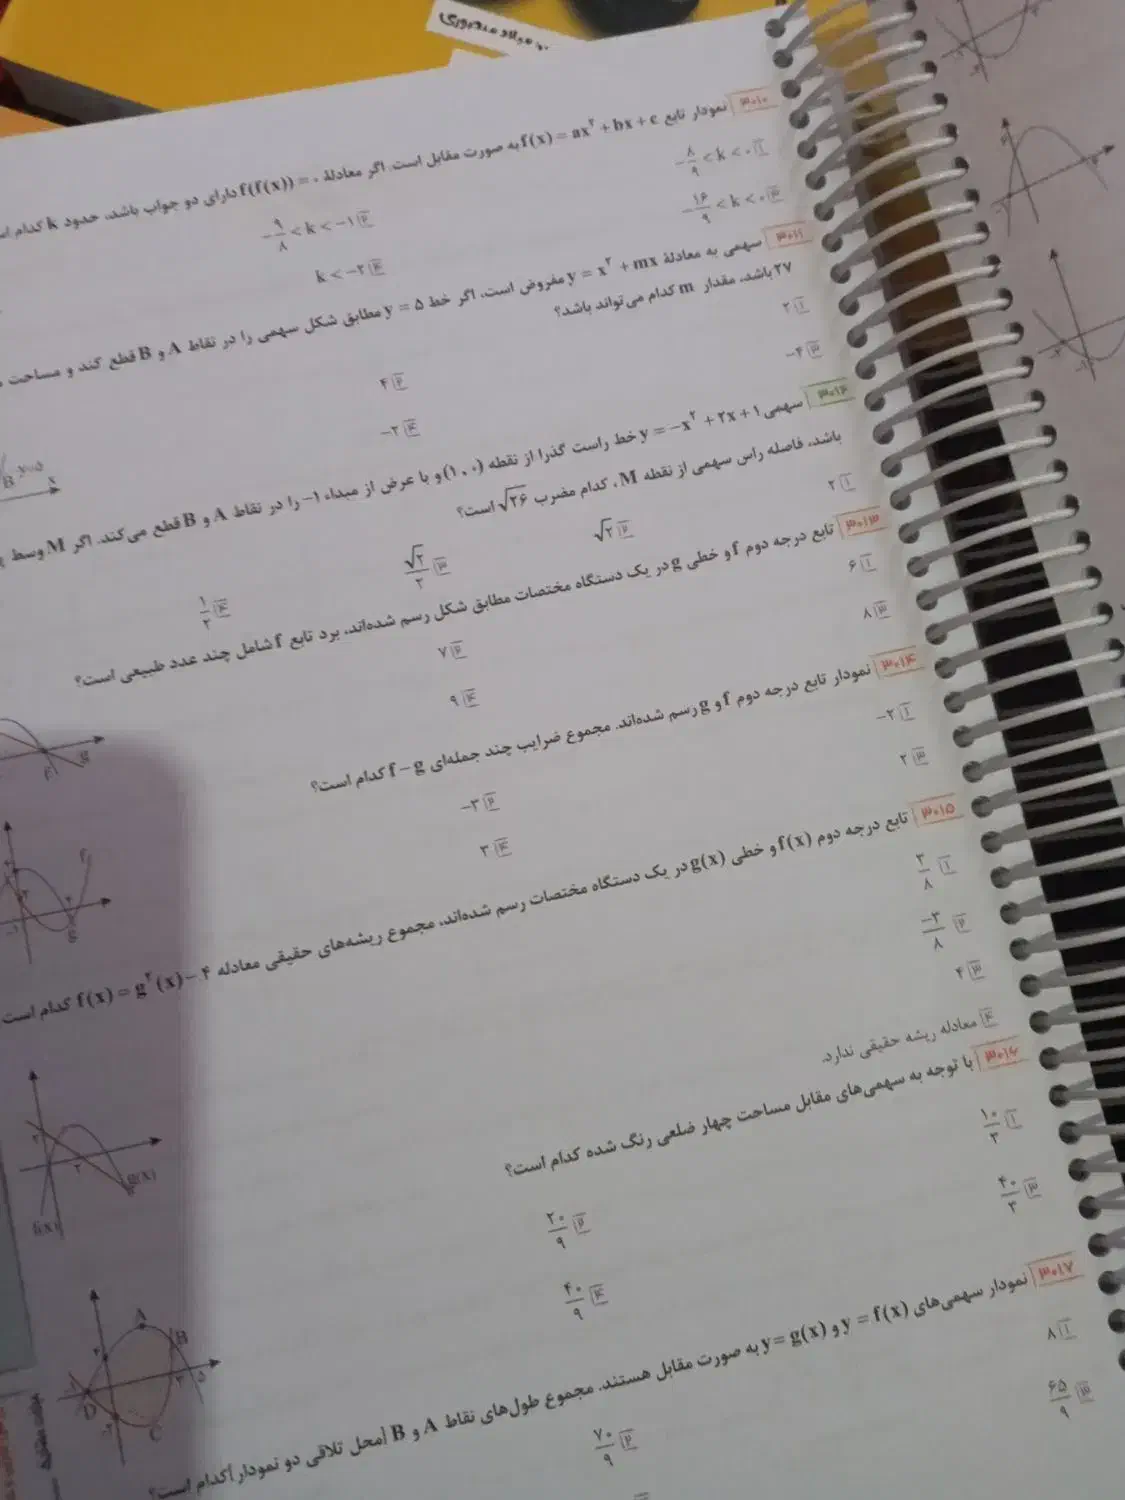 میلاد منصوری
۳۰۱۰ نمودار تابع f(x) = ax² + bx + c به صورت مقابل است. اگر معادلهٔ f(f(x)) = ۰ دارای دو جواب باشد، حدود k کدام
۱) −۸/۹ < k < ۰
۲) −۹/۸ < k < −۱
۳) −۱۶/۹ < k < ۰
۴) k < −۲
۳۰۱۱ سهمی به معادلهٔ y = x² + mx مفروض است، اگر خط y = ۵ مطابق شکل سهمی را در نقاط A و B قطع کند و مساحت
۲۷ باشد، مقدار m کدام می‌تواند باشد؟
۱) ۲
۲) ۴
۳) −۴
۴) −۲
B y=۵
x
۳۰۱۲ سهمی y = −x² + ۲x + ۱ خط راست گذرا از نقطه (۱,۰) و با عرض از مبداء ۱− را در نقاط A و B قطع می‌کند. اگر M وسط
باشد، فاصله راس سهمی از نقطه M، کدام مضرب √۲۶ است؟
۱) ۲
۲) √۲
۳) √۲/۲
۴) ۱/۲
۳۰۱۳ تابع درجه دوم f و خطی g در یک دستگاه مختصات مطابق شکل رسم شده‌اند، برد تابع f شامل چند عدد طبیعی است؟
۱) ۶
۲) ۷
۳) ۸
۴) ۹
f g
۳۰۱۴ نمودار تابع درجه دوم f و g رسم شده‌اند. مجموع ضرایب چند جمله‌ای f − g کدام است؟
۱) −۲
۲) −۳
۳) ۲
۴) ۳
f
−۱ g
۳۰۱۵ تابع درجه دوم f(x) و خطی g(x) در یک دستگاه مختصات رسم شده‌اند، مجموع ریشه‌های حقیقی معادله f(x) = g²(x) − ۴ کدام است
۱) ۳/۸
۲) −۳/۸
۳) ۴
۴) معادله ریشه حقیقی ندارد.
۲
۲ g(x)
f(x)
۳۰۱۶ با توجه به سهمی‌های مقابل مساحت چهار ضلعی رنگ شده کدام است؟
۱) ۱۰/۳
۲) ۲۰/۹
۳) ۴۰/۳
۴) ۴۰/۹
A
B
۵
D
C
۳۰۱۷ نمودار سهمی‌های y = f(x) و y = g(x) به صورت مقابل هستند. مجموع طول‌های نقاط A و B [محل تلاقی دو نمودار] کدام است؟
۱) ۸
۲) ۷۰/۹
۳) ۶۵/۹